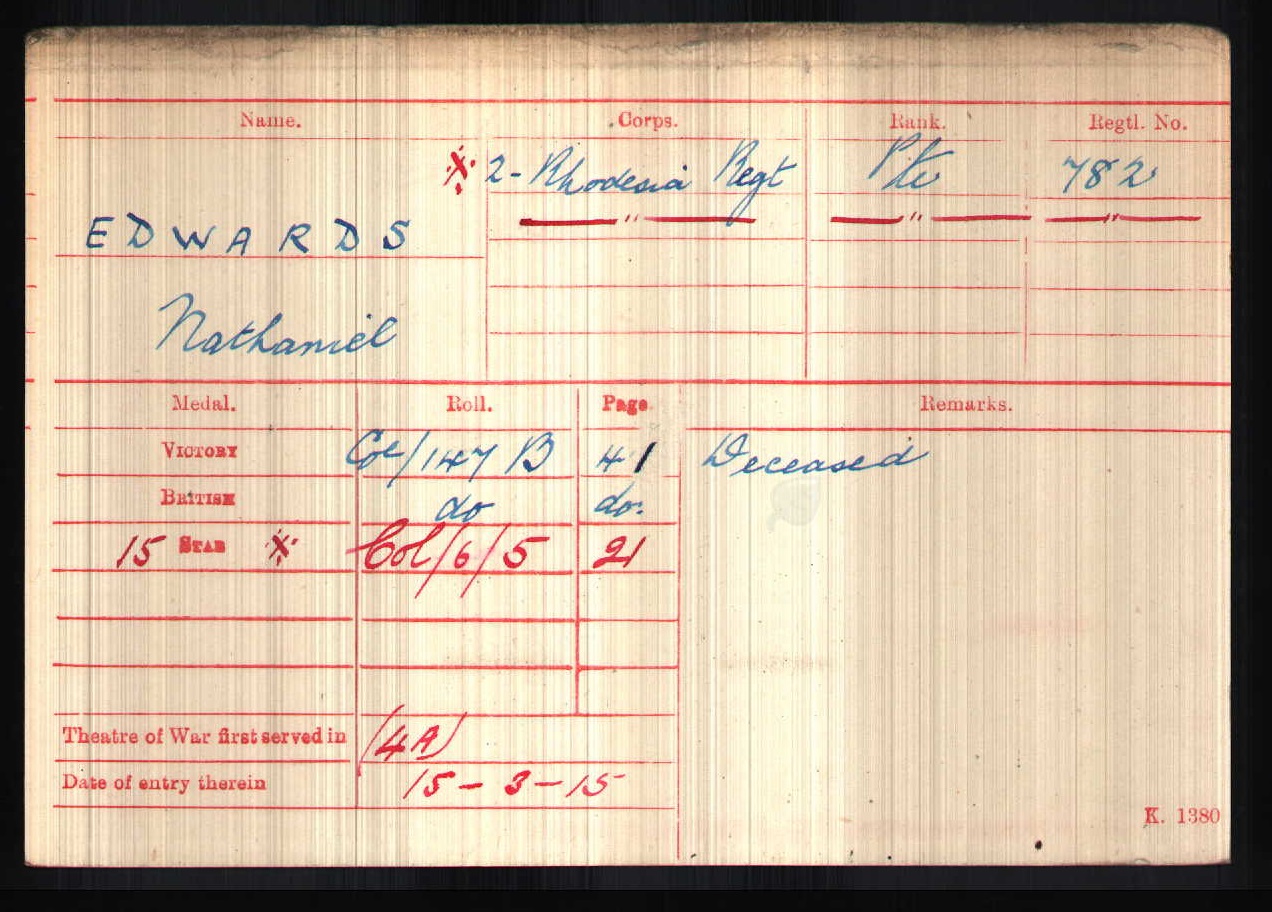 Name. Corps. Rank. Regtl. No.
※ 2 - Rhodesia Regt Pte 782
" " "
EDWARDS
Nathaniel
Medal. Roll. Page Remarks.
VICTORY Col/147 B 41 Deceased
BRITISH do do.
15 STAR ※ Col/6/5 21
Theatre of War first served in (4A)
Date of entry therein 15 - 3 - 15
K. 1380